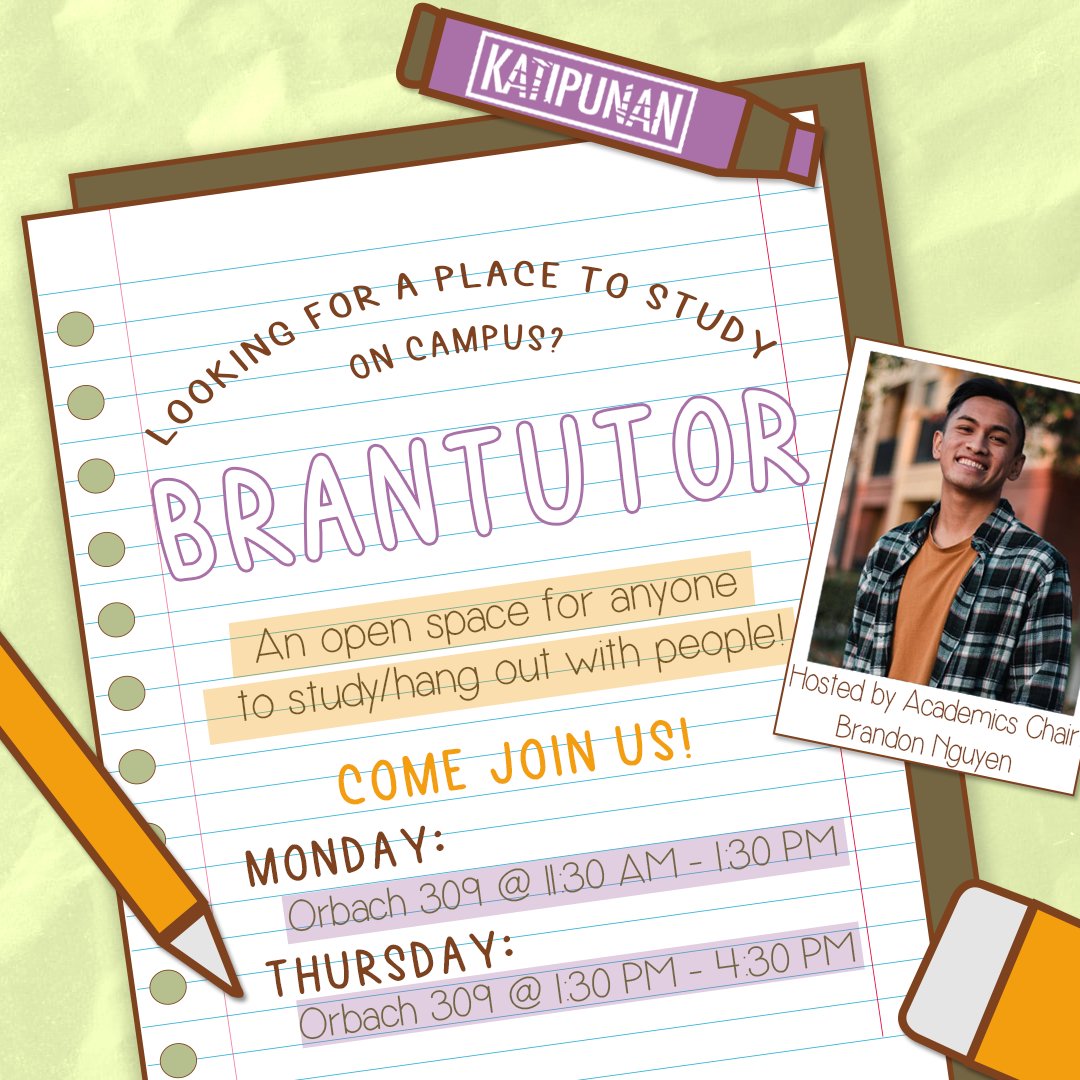 KATIPUNAN
LOOKING FOR A PLACE TO STUDY
ON CAMPUS?
BRANTUTOR
An open space for anyone
to study/hang out with people!
Hosted by Academics Chair
Brandon Nguyen
COME JOIN US!
MONDAY:
Orbach 309 @ 11:30 AM - 1:30 PM
THURSDAY:
Orbach 309 @ 1:30 PM - 4:30 PM